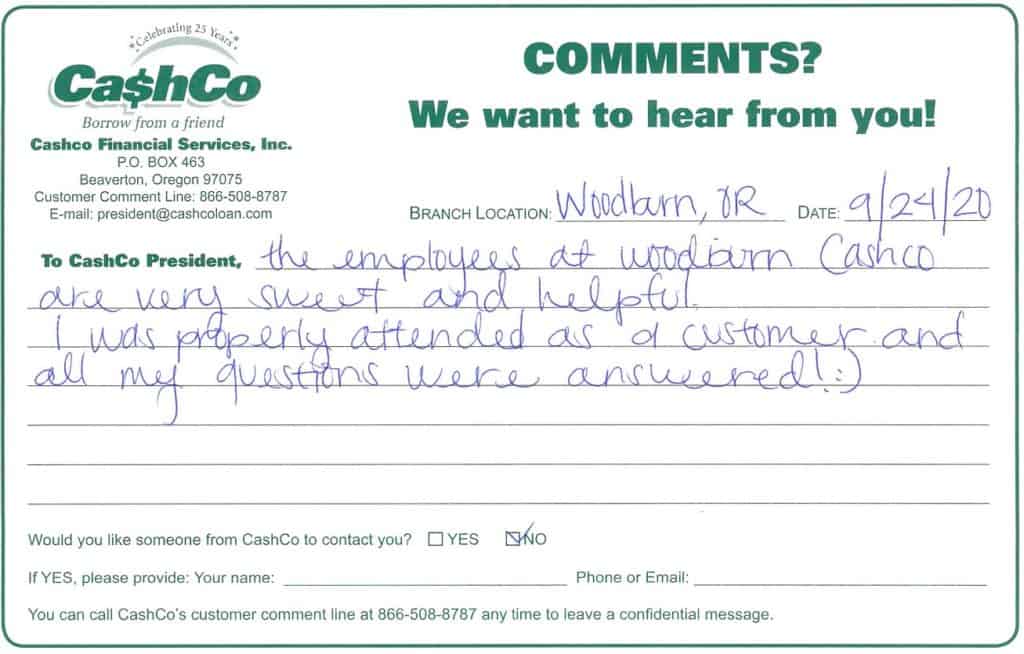 Celebrating 25 Years
Ca$hCo
Borrow from a friend
Cashco Financial Services, Inc.
P.O. BOX 463
Beaverton, Oregon 97075
Customer Comment Line: 866-508-8787
E-mail: president@cashcoloan.com
COMMENTS?
We want to hear from you!
BRANCH LOCATION: Woodburn, OR DATE: 9/24/20
To CashCo President, the employees at woodburn Cashco
are very sweet and helpful.
I was properly attended as a customer and
all my questions were answered! :)
Would you like someone from CashCo to contact you? YES NO
If YES, please provide: Your name: Phone or Email:
You can call CashCo's customer comment line at 866-508-8787 any time to leave a confidential message.